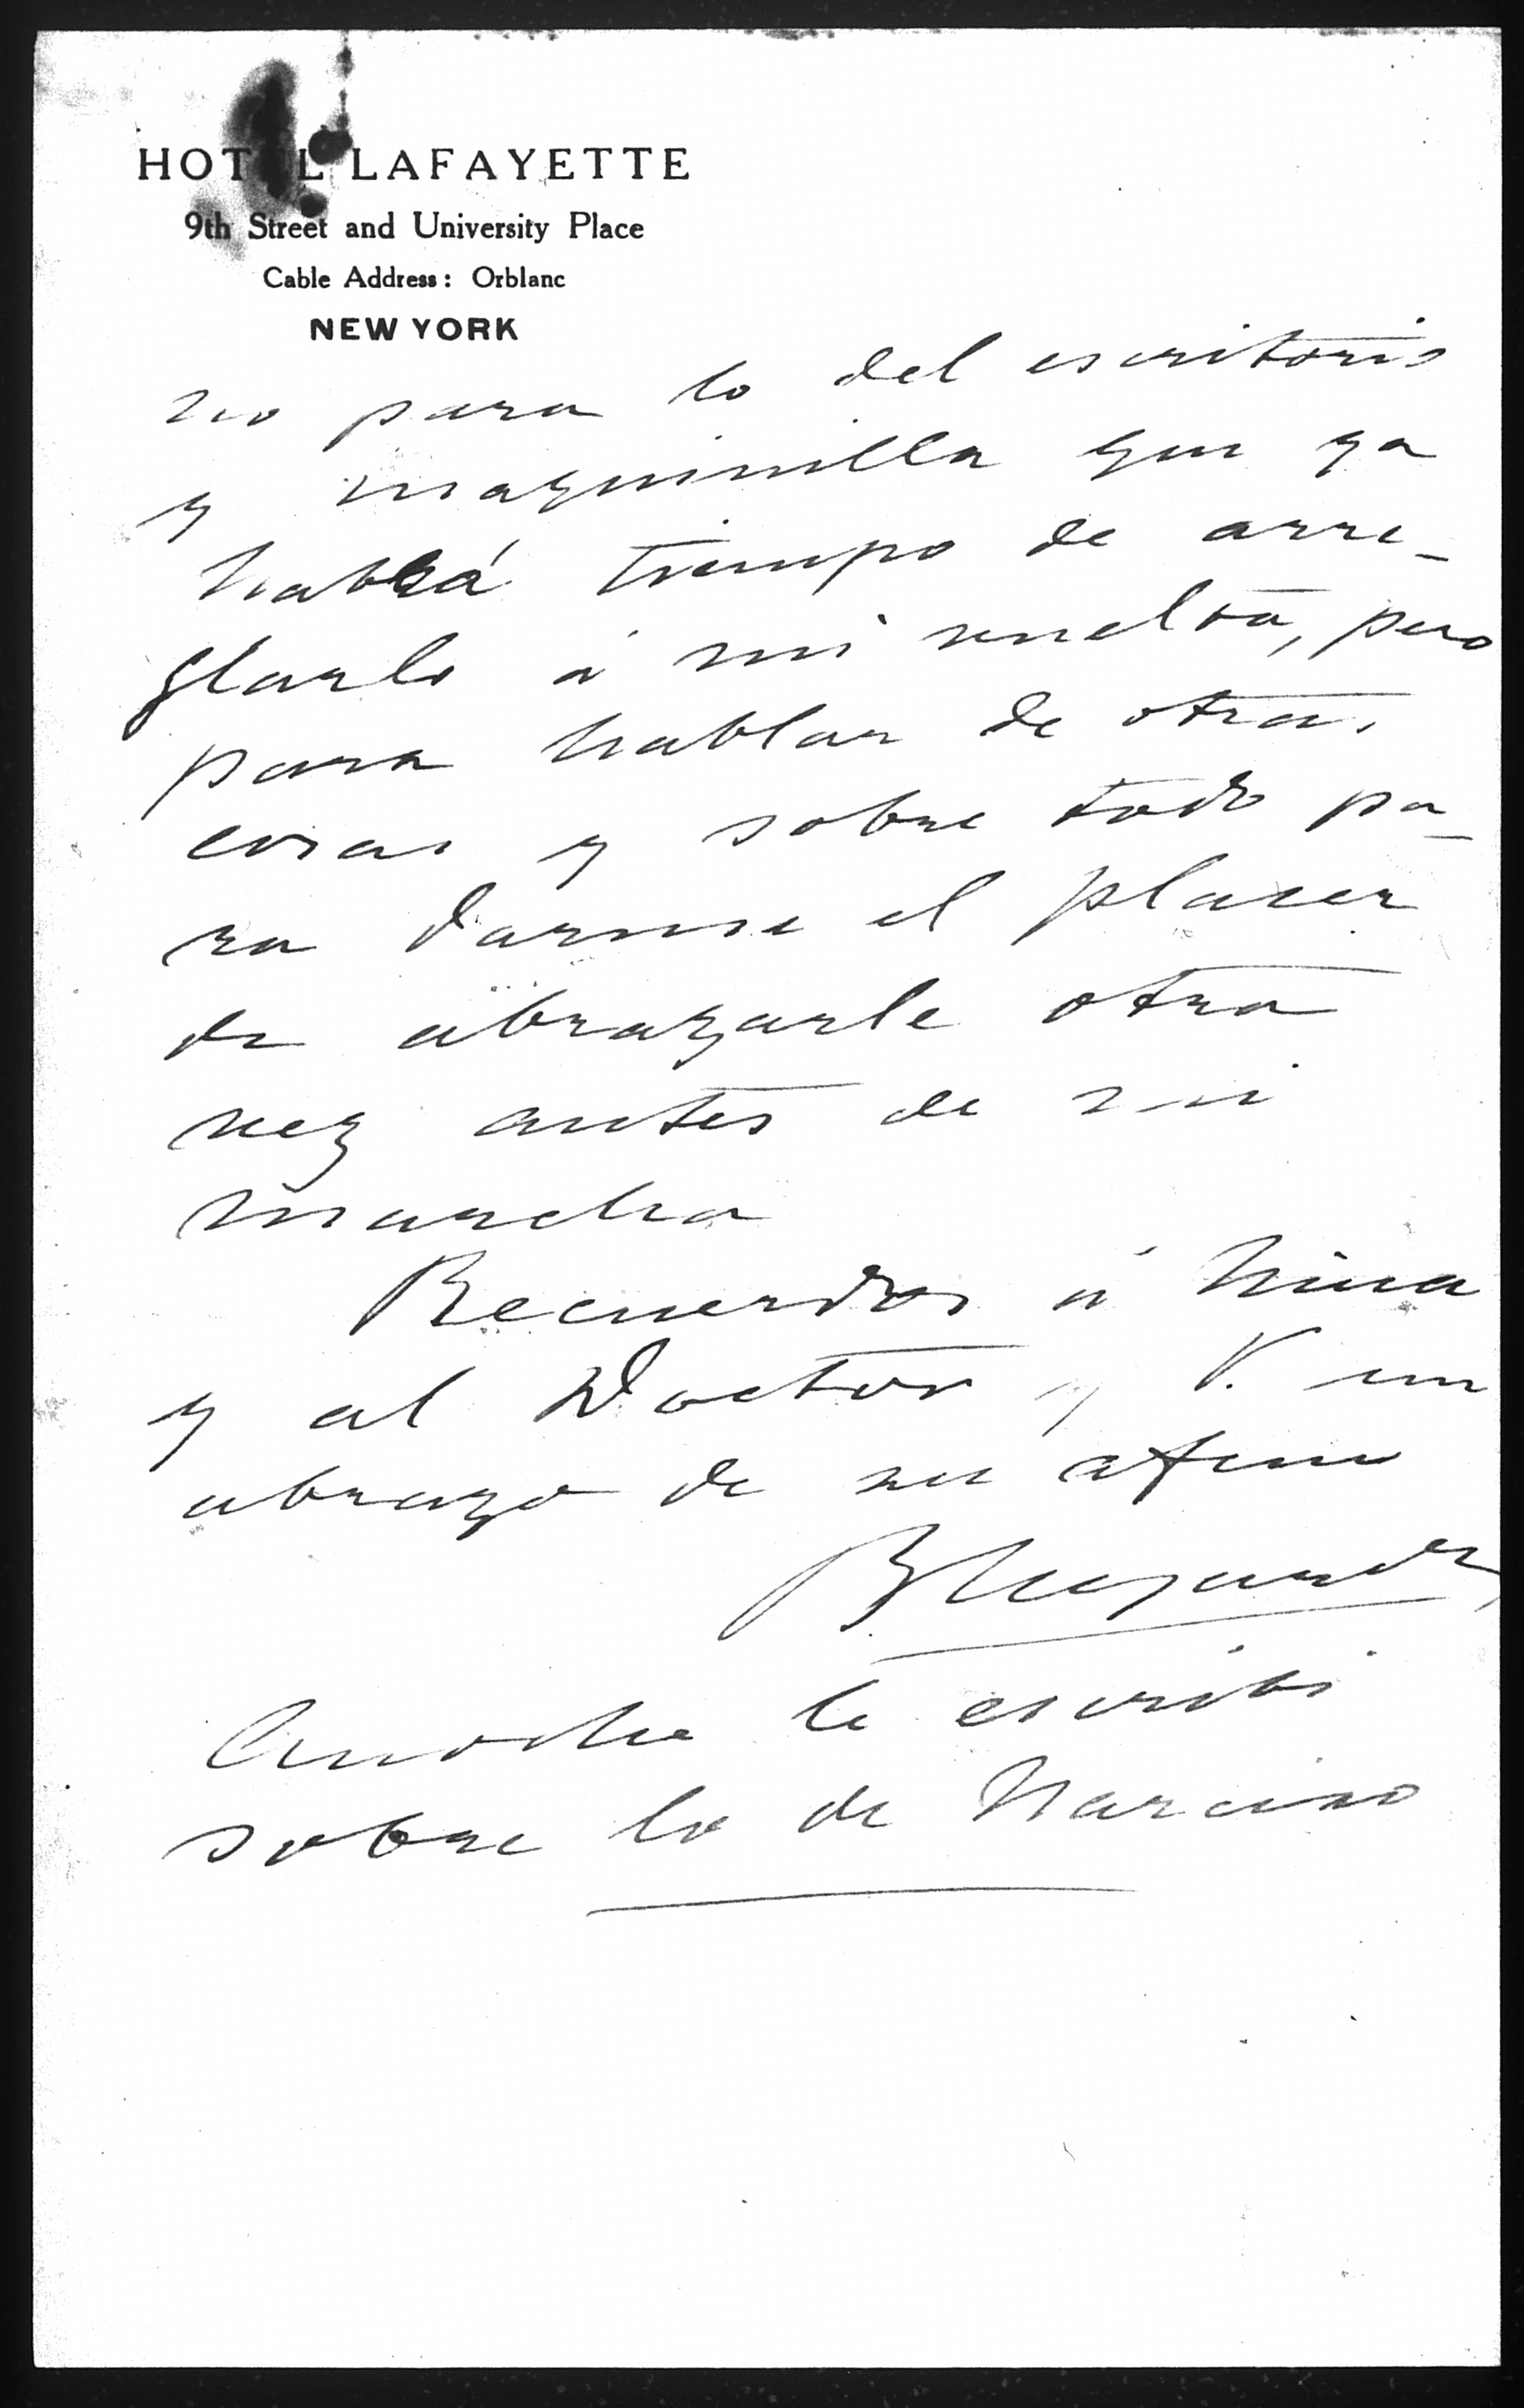 HOTEL LAFAYETTE
9th Street and University Place
Cable Address: Orblanc
NEW YORK
no para lo del escritorio
y maquinilla que ya
habrá tiempo de arre-
glarlo á mi vuelta, pero
para hablar de otras
cosas y sobre todo pa-
ra darme el placer
de abrazarle otra
vez antes de mi
marcha
Recuerdos á Nina
y al Doctor y V. un
abrazo de su afmo
Anoche le escribí
sobre lo de Narciso